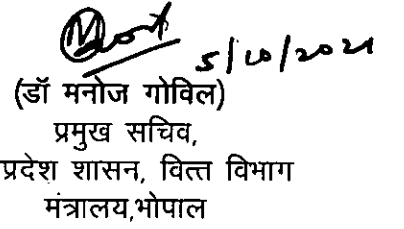 5/10/2021
(डॉ मनोज गोविल)
प्रमुख सचिव,
प्रदेश शासन, वित्त विभाग
मंत्रालय,भोपाल